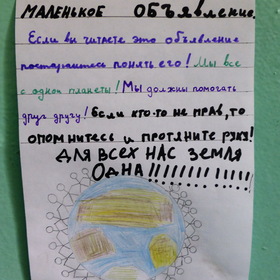 МАЛЕНЬКОЕ ОБЪЯВЛЕНИЕ.
Если вы читаете это объявление
постарайтесь понять его! Мы все
с одной планеты! Мы должны помогать
друг другу! Если кто-то не прав, то
опомнитесь и протяните руку!
ДЛЯ ВСЕХ НАС ЗЕМЛЯ
ОДНА!!!!!!!!!!!